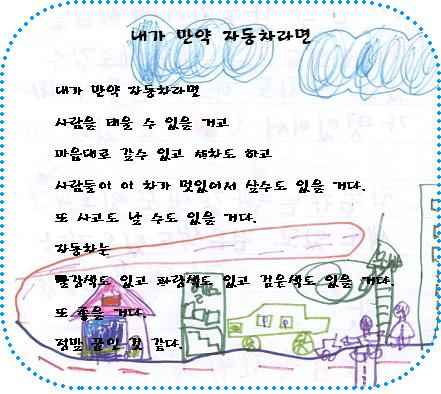 내가 만약 자동차라면
내가 만약 자동차라면
사람을 태울 수 있을 거고
마음대로 갈수 있고 세차도 하고
사람들이 이 차가 멋있어서 살수도 있을 거다.
또 사고도 날 수도 있을 거다.
자동차는
빨강색도 있고 파랑색도 있고 검은색도 있을 거다.
또 좋을 거다.
정말 꿈인 것 같다.